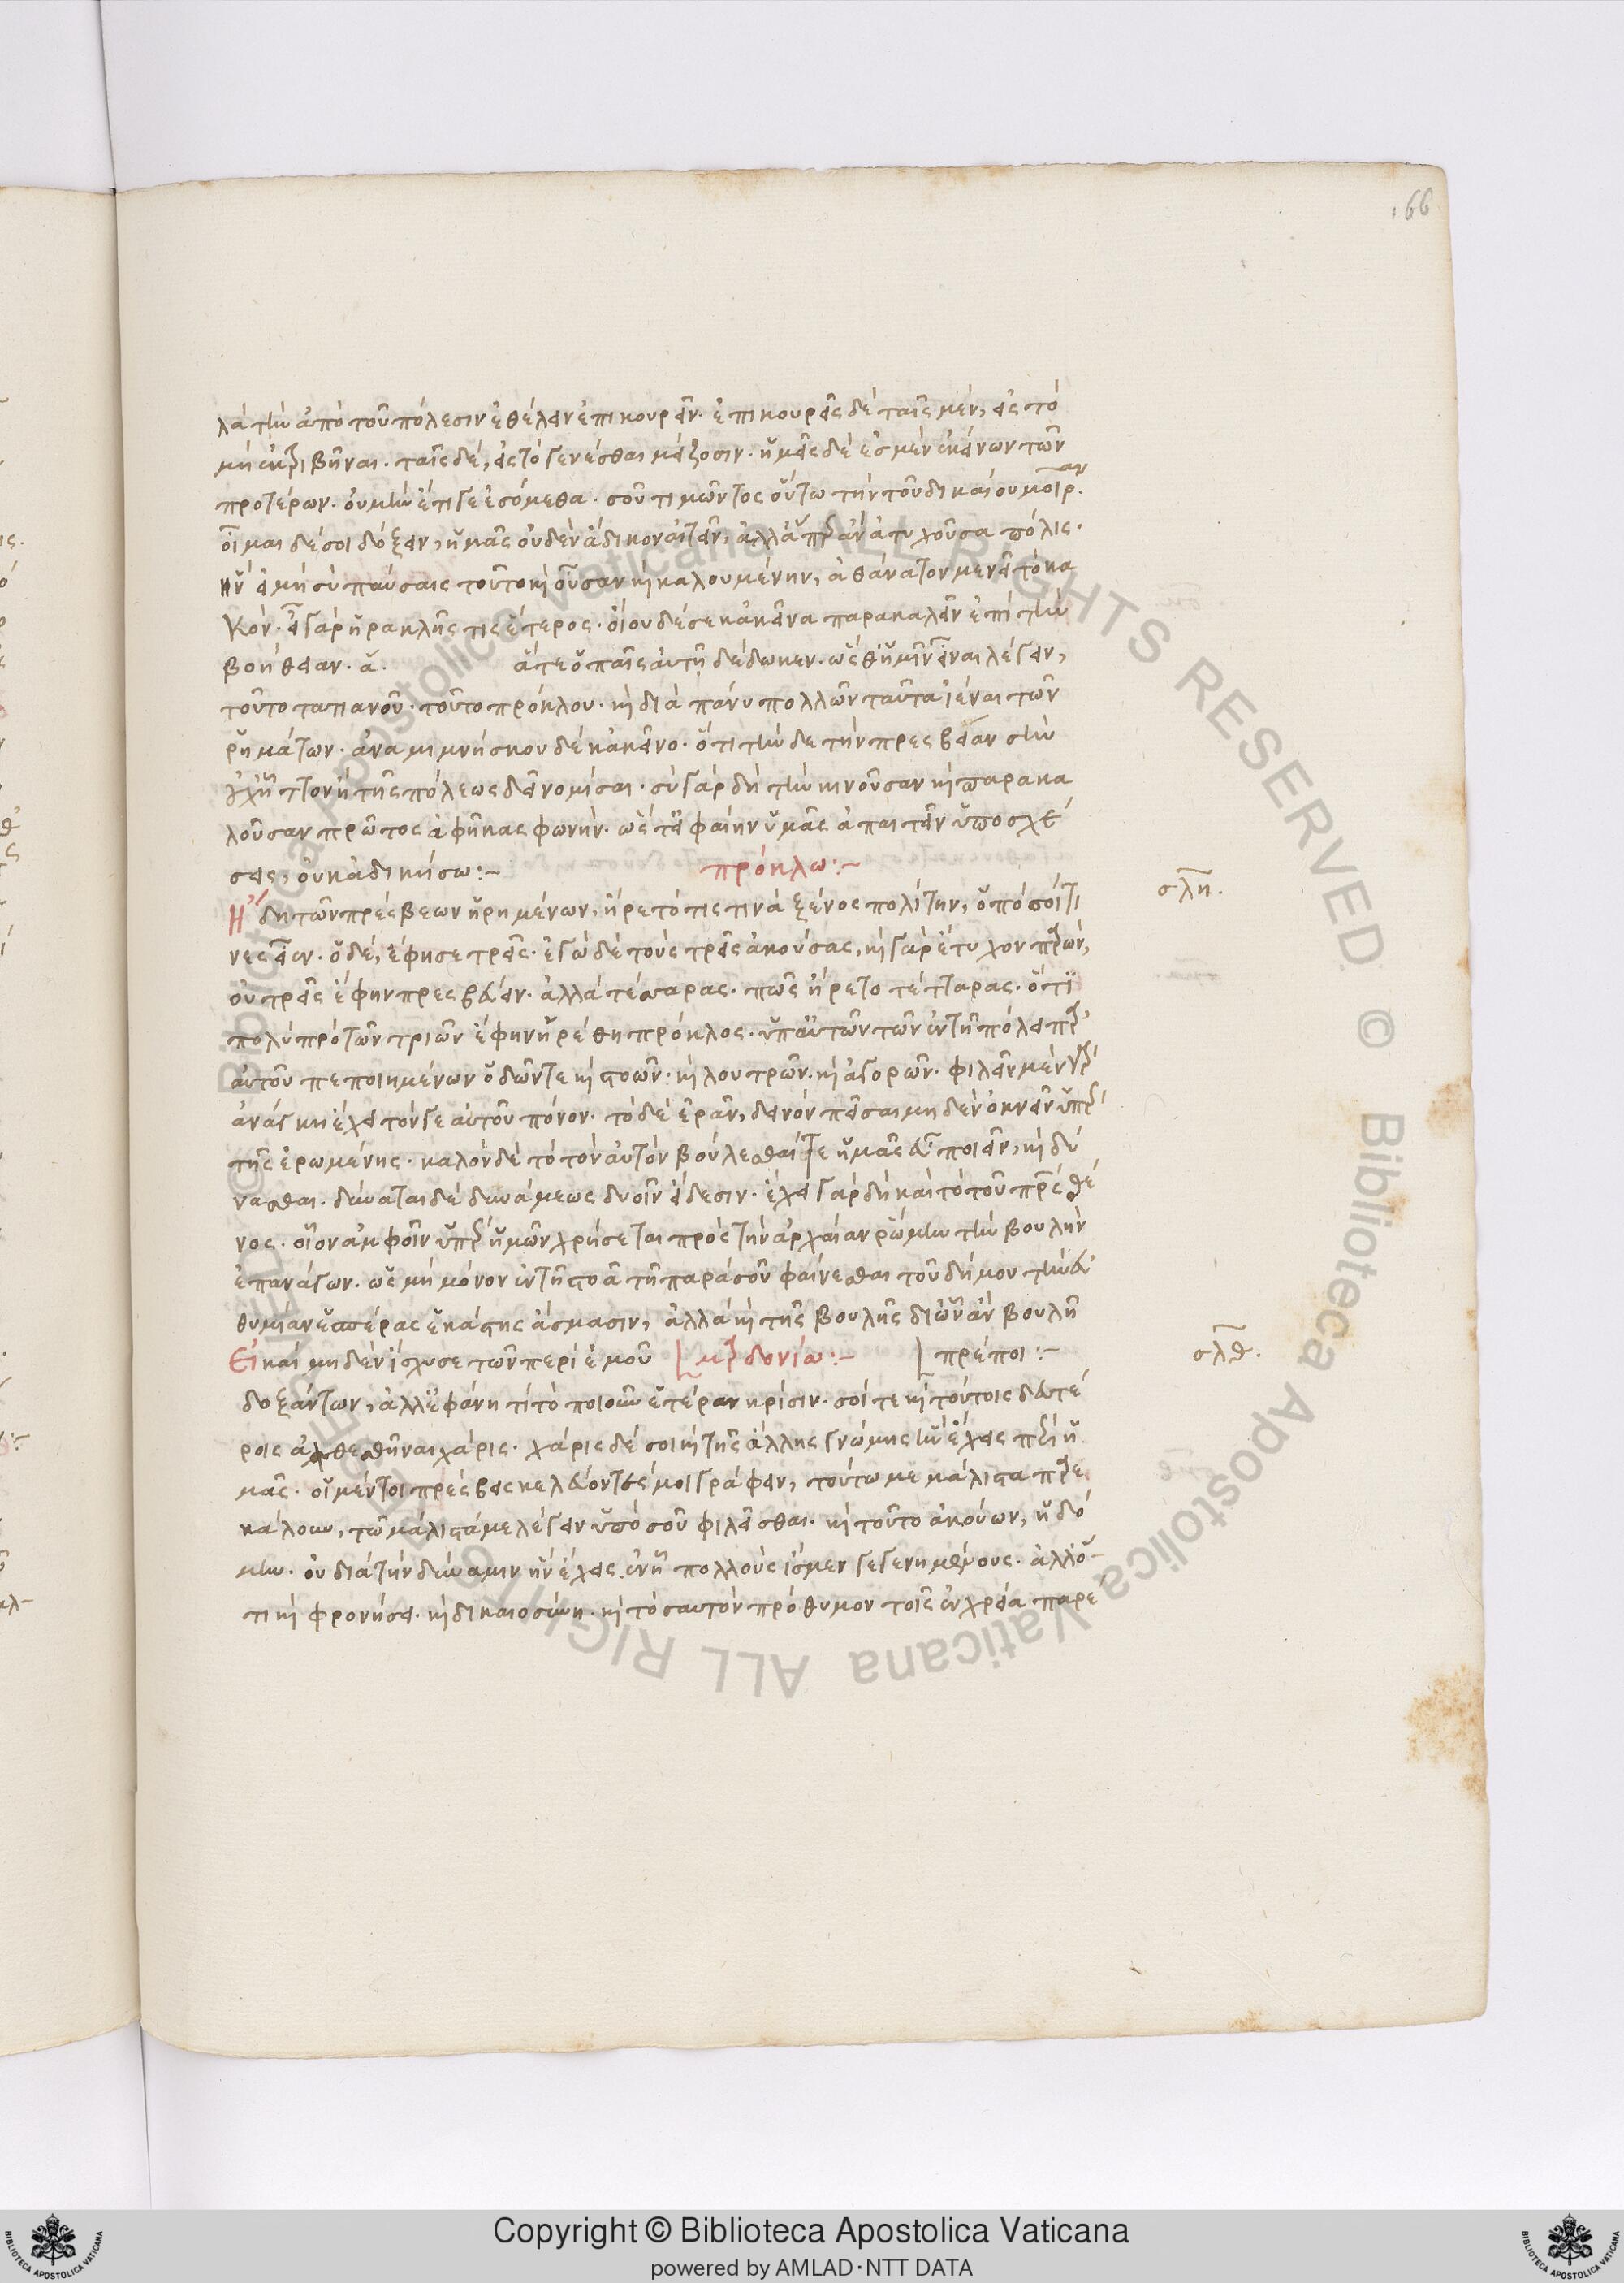 166
λάττω ἀπὸ τοῦ πόλεσιν ἐθέλειν ἐπικουρεῖν. ἐπικουρεῖς δὲ ταῖς μὲν, εἰς τὸ
μὴ ἐκτριβῆναι. ταῖς δὲ, εἰς τὸ γενέσθαι μείζοσιν. ἡμεῖς δέ ἐσμεν ἐκείνων τῶν
προτέρων. οὐ μὴν ἔτι γε ἐσόμεθα. σοῦ τιμῶντος οὕτω τὴν τοῦ δικαίου μοῖραν.
οἶμαι δέ σοι δόξειν, ἡμᾶς οὐδὲν ἄδικον αἰτεῖν, ἀλλ' ἅπερ ἂν ἀτυχοῦσα πόλις.
ἣν εἰ μὴ σὺ παύσαις τοῦτο καὶ οὖσαν καὶ καλουμένην, ἀθάνατον μενεῖ τὸ κα
κόν. εἰ γὰρ ἡρακλῆς τις ἕτερος. οἴου δέ σε κἀκεῖνα παρακαλεῖν ἐπὶ τὴν
βοήθειαν. ἅ. ἅτε ὁ παῖς αὐτῇ δέδωκεν. ὡς εἴη ἡμῖν εἶναι λέγειν,
τοῦτο τατιανοῦ. τοῦτο πρόκλου. καὶ διὰ πάνυ πολλῶν ταῦτα ἰέναι τῶν
ῥημάτων. ἀναμιμνήσκου δὲ κἀκεῖνο. ὅτι τήνδε τὴν πρεσβείαν σὴν
οὐχ ἧττον ἢ τῆς πόλεως δεῖ νομίσαι. σὺ γὰρ δὴ τὴν κινοῦσαν καὶ παρακα
λοῦσαν πρῶτος ἀφῆκας φωνήν. ὥστ' εἰ φαίην ὑμᾶς ἀπαιτεῖν ὑποσχέ
σεις, οὐκ ἀδικήσω:~ πρόκλω:~
σλη.
Ἤδη τῶν πρέσβεων ᾑρημένων, ἤρετό τις τινὰ ξένος πολίτην, ὁπόσοί τι
νες εἶεν. ὁ δὲ, ἔφησε τρεῖς. ἐγὼ δὲ τοὺς τρεῖς ἀκούσας, καὶ γὰρ ἔτυχον παρὼν,
οὐ τρεῖς ἔφην πρεσβεύειν. ἀλλὰ τέσσαρας. πῶς ἤρετο τέτταρας. ὅτι
πολὺ πρὸ τῶν τριῶν ἔφην ᾑρέθη πρόκλος. ὑπ' αὐτῶν τῶν ἐν τῇ πόλει παρ'
αὐτοῦ πεποιημένων ὁδῶν τε καὶ στοῶν. καὶ λουτρῶν. καὶ ἀγορῶν. φιλεῖν μὲν γὰρ
ἀνάγκη ἔχει τόν γε αὑτοῦ πόνον. τὸ δὲ ἐρᾶν, δεινὸν πεῖσαι μηδὲν ὀκνεῖν ὑπὲρ
τῆς ἐρωμένης. καλὸν δὲ τὸ τὸν αὐτὸν βούλεσθαί τε ἡμᾶς εὖ ποιεῖν, καὶ δύ
νασθαι. δύναται δὲ δυνάμεως δυοῖν εἴδεσιν. ἔχει γὰρ δὴ καὶ τὸ τοῦ παρεσθέ
νος. οἷον ἀμφοῖν ὑπὲρ ἡμῶν χρήσεται πρὸς τὴν ἀρχαίαν ῥώμην τὴν βουλὴν
ἐπανάγων. ὡς μὴ μόνον ἐν τῇ στοᾷ τῇ παρὰ σοῦ φαίνεσθαι τοῦ δήμου τὴν εὐ
θυμίαν ἑσπέρας ἑκάστης ἄσμασιν, ἀλλὰ καὶ τῆς βουλῆς δι' ὧν ἂν βουλῇ
Εἰ καὶ μηδὲν ἴσχυσε τῶν περὶ ἐμοῦ μαρδονίω:~ πρέποι:~
σλθ.
δοξάντων, ἀλλ' ἐφάνη τι τὸ ποιοῦν ἑτέραν κρίσιν. σοί τε καὶ τούτοις δευτέ
ροις ἀχθεσθῆναι χάρις. χάρις δέ σοι καὶ τῆς ἄλλης γνώμης ἣν ἔχεις περὶ ἡ
μᾶς. οἱ μέντοι πρέσβεις κελεύοντές μοι γράφειν, τούτω με μάλιστα παρε
κάλουν, τῶ μάλιστά με λέγειν ὑπὸ σοῦ φιλεῖσθαι. καὶ τοῦτο ἀκούων, ἡδό
μην. οὐ διὰ τὴν δύναμιν ἣν ἔχεις. ἐν ᾗ πολλοὺς ἴσμεν γεγενημένους. ἀλλ' ὅ
τι καὶ φρονήσει. καὶ δικαιοσύνη. καὶ τὸ σαυτὸν πρόθυμον τοῖς ἐν χρείᾳ παρέ
Copyright © Biblioteca Apostolica Vaticana
powered by AMLAD·NTT DATA